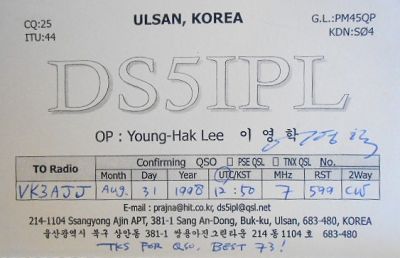 CQ:25 ULSAN, KOREA G.L.:PM45QP
ITU:44 KDN:SØ4
DS5IPL
OP : Young-Hak Lee 이 영 학
TO Radio Confirming QSO □ PSE QSL □ TNX QSL No.
Month Day Year UTC/KST MHz RST 2Way
VK3AJJ Aug. 31 1998 12:50 7 599 CW
E-mail : prajna@hit.co.kr, ds5ipl@qsl.net
214-1104 Ssangyong Ajin APT, 381-1 Sang An-Dong, Buk-ku, Ulsan, 683-480, KOREA
울산광역시 북구 상안동 381-1 쌍용아진그린타운 214 동 1104 호 683-480
TKS FOR QSO, BEST 73!